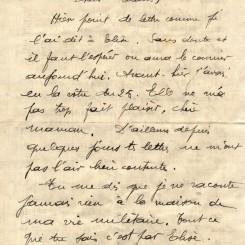 Hier point de lettre comme je
l'ai dit à Elise. Sans doute et
il faut l'espérer on aura le courrier
aujourd'hui. Avant-hier j'avais
eu la vôtre du 25. Elle ne m'a
pas trop fait plaisir, chère
maman. D'ailleurs depuis
quelques jours ta lettre ne m'ont
pas l'air bien contente.
Tu me dis que je ne raconte
jamais rien à la maison de
ma vie militaire. Tout ce
que tu sais c'est par Elise.